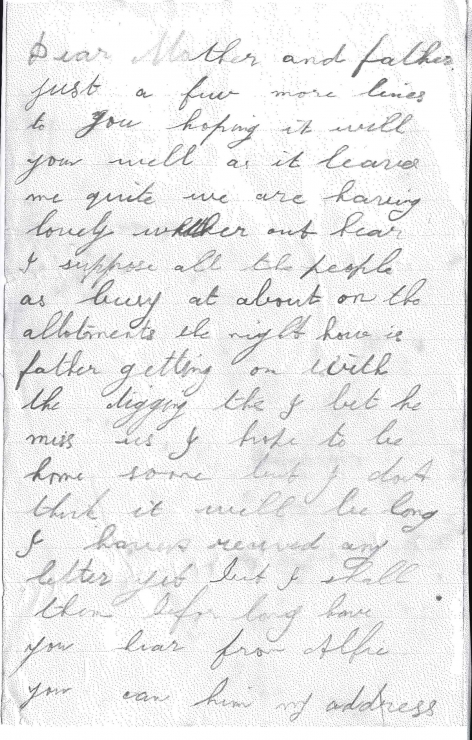 Dear Mother and father
just a few more lines
to you hoping it will
your well as it leave
me quite we are having
lovely wether out hear
I suppose all the people
as busy at about on the
allotments the night how is
father getting on with
the digging the I bet he
miss us I hope to be
home soone but I dont
think it will be long
I havens recived any
letter yet but I shall
them befor long have
you hear from Alfie
you can him my address